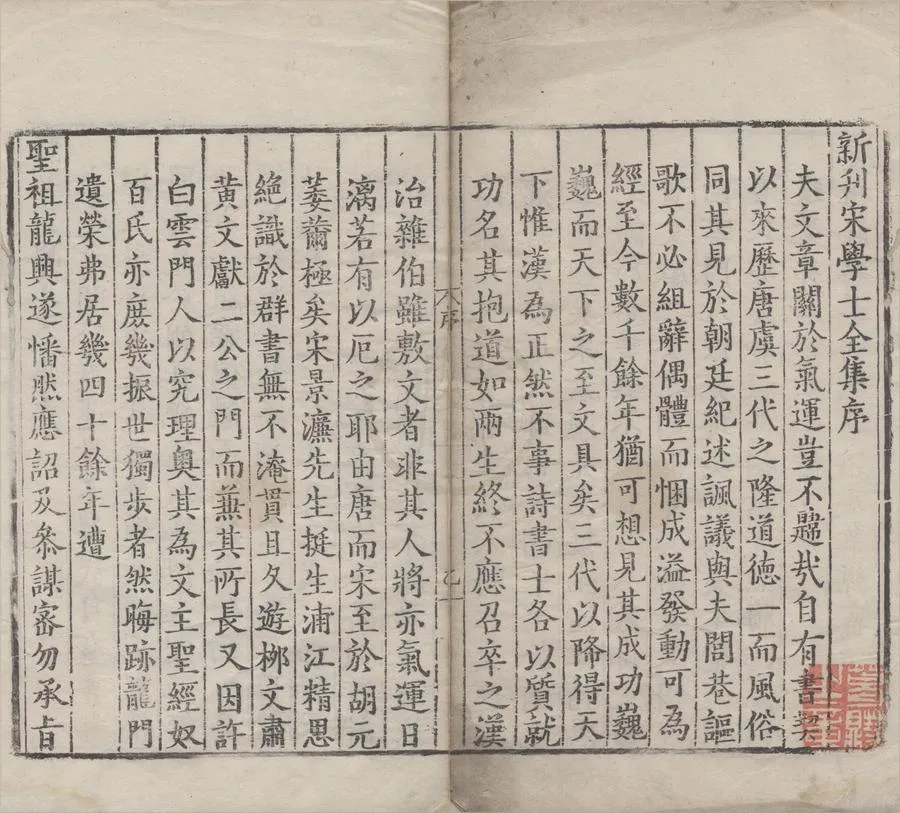 新刋宋學士全集序
夫文章關於氣運豈不韙㢤自有書契
以來歷唐虞三代之隆道德一而風俗
同其見於朝廷紀述諷議與夫閭巷謳
歌不必組辭偶體而悃成溢發動可為
經至今數千餘年猶可想見其成功巍
巍而天下之至文具矣三代以降得天
下惟漢為正然不事詩書士各以質就
功名其抱道如兩生終不應召卒之漢
序
乙一
治雜伯雖敷文者非其人將亦氣運日
漓若有以厄之耶由唐而宋至於胡元
萎薾極矣宋景濂先生挺生浦江精思
絶識於群書無不淹貫且久遊柳文肅
黃文獻二公之門而兼其所長又因許
白雲門人以究理奧其為文主聖經奴
百氏亦庶幾振世獨步者然晦跡龍門
遺榮弗居幾四十餘年遭
聖祖龍興遂惓然應詔及叅謀密勿承㫖